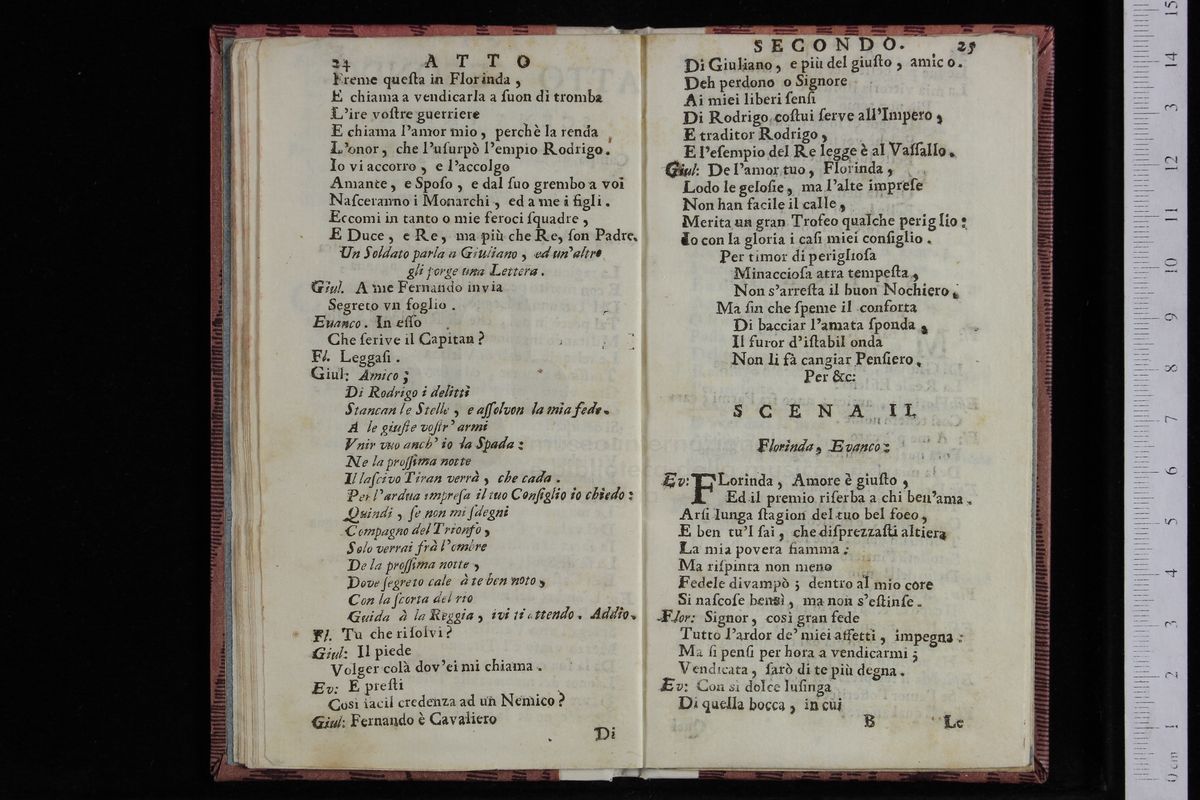 24 ATTO
Freme queſta in Florinda ,
E chiama a vendicarla a ſuon di tromba
L'ire voſtre guerriere
E chiama l'amor mio , perchè la renda
L'onor , che l'uſurpò l'empio Rodrigo.
Io vi accorro , e l'accolgo
Amante , e Spoſo , e dal ſuo grembo a voi
Naſceranno i Monarchi , ed a me i figli .
Eccomi in tanto o mie feroci ſquadre ,
E Duce , e Re , ma più che Re, ſon Padre.
Un Soldato parla a Giuliano , ed un'altro
gli porge una Lettera .
Giul. A me Fernando invia
Segreto vn foglio .
Evanco. In eſſo
Che ſerive il Capitan ?
Fl. Leggaſi .
Giul: Amico ;
Di Rodrigo i delitti
Stancan le Stelle , e aſſolvon la mia fede.
A le giuſte voſtr' armi
Vnir vuo anch' io la Spada :
Ne la proſſima notte
Il laſcivo Tiran verrà , che cada .
Per l'ardua impreſa il tuo Conſiglio io chiedo :
Quindi , ſe non mi ſdegni
Compagno del Trionfo ,
Solo verrai frà l'ombre
De la proſſima notte ,
Dove ſegreto cale à te ben noto ,
Con la ſcorta del rio
Guida à la Reggia , ivi ti attendo . Addio.
Fl. Tu che riſolvi ?
Giul: Il piede
Volger colà dov'ei mi chiama .
Ev: E preſti
Così facil credenza ad un Nemico ?
Giul: Fernando è Cavaliero
Di
SECONDO. 25
Di Giuliano , e più del giuſto , amico.
Deh perdono o Signore
Ai miei liberi ſenſi
Di Rodrigo coſtui ſerve all'Impero ,
E traditor Rodrigo ,
E l'eſempio del Re legge è al Vaſſallo .
Giul: De l'amor tuo , Florinda ,
Lodo le geloſie , ma l'alte impreſe
Non han facile il calle ,
Merita un gran Trofeo qualche periglio :
Io con la gloria i caſi miei conſiglio .
Per timor di perigliofa
Minaccioſa atra tempeſta ,
Non s'arreſta il buon Nochiero .
Ma ſin che ſpeme il conforta
Di bacciar l'amata ſponda ,
Il furor d'iſtabil onda
Non li fà cangiar Penſiero .
Per &c:
SCENA II.
Florinda, Evanco :
Ev: FLorinda , Amore è giuſto ,
Ed il premio riſerba a chi ben'ama .
Arſi lunga ſtagion del tuo bel foco ,
E ben tu'l ſai , che diſprezzaſti altiera
La mia povera fiamma :
Ma riſpinta non meno
Fedele divampò ; dentro al mio core
Si naſcoſe bensì , ma non s'eſtinſe .
Flor: Signor , così gran fede
Tutto l'ardor de' miei affetti , impegna :
Ma ſi penſi per hora a vendicarmi ;
Vendicata , ſarò di te più degna .
Ev: Con sì dolce luſinga
Di quella bocca , in cui
B Le